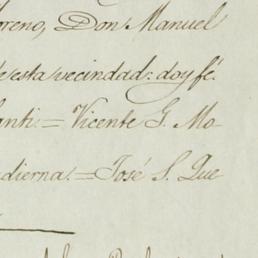 oreno, Don Manuel
e esta vecindad: doy fé.
anti.= Vicente G. Mo-
dierna.= José S. Que